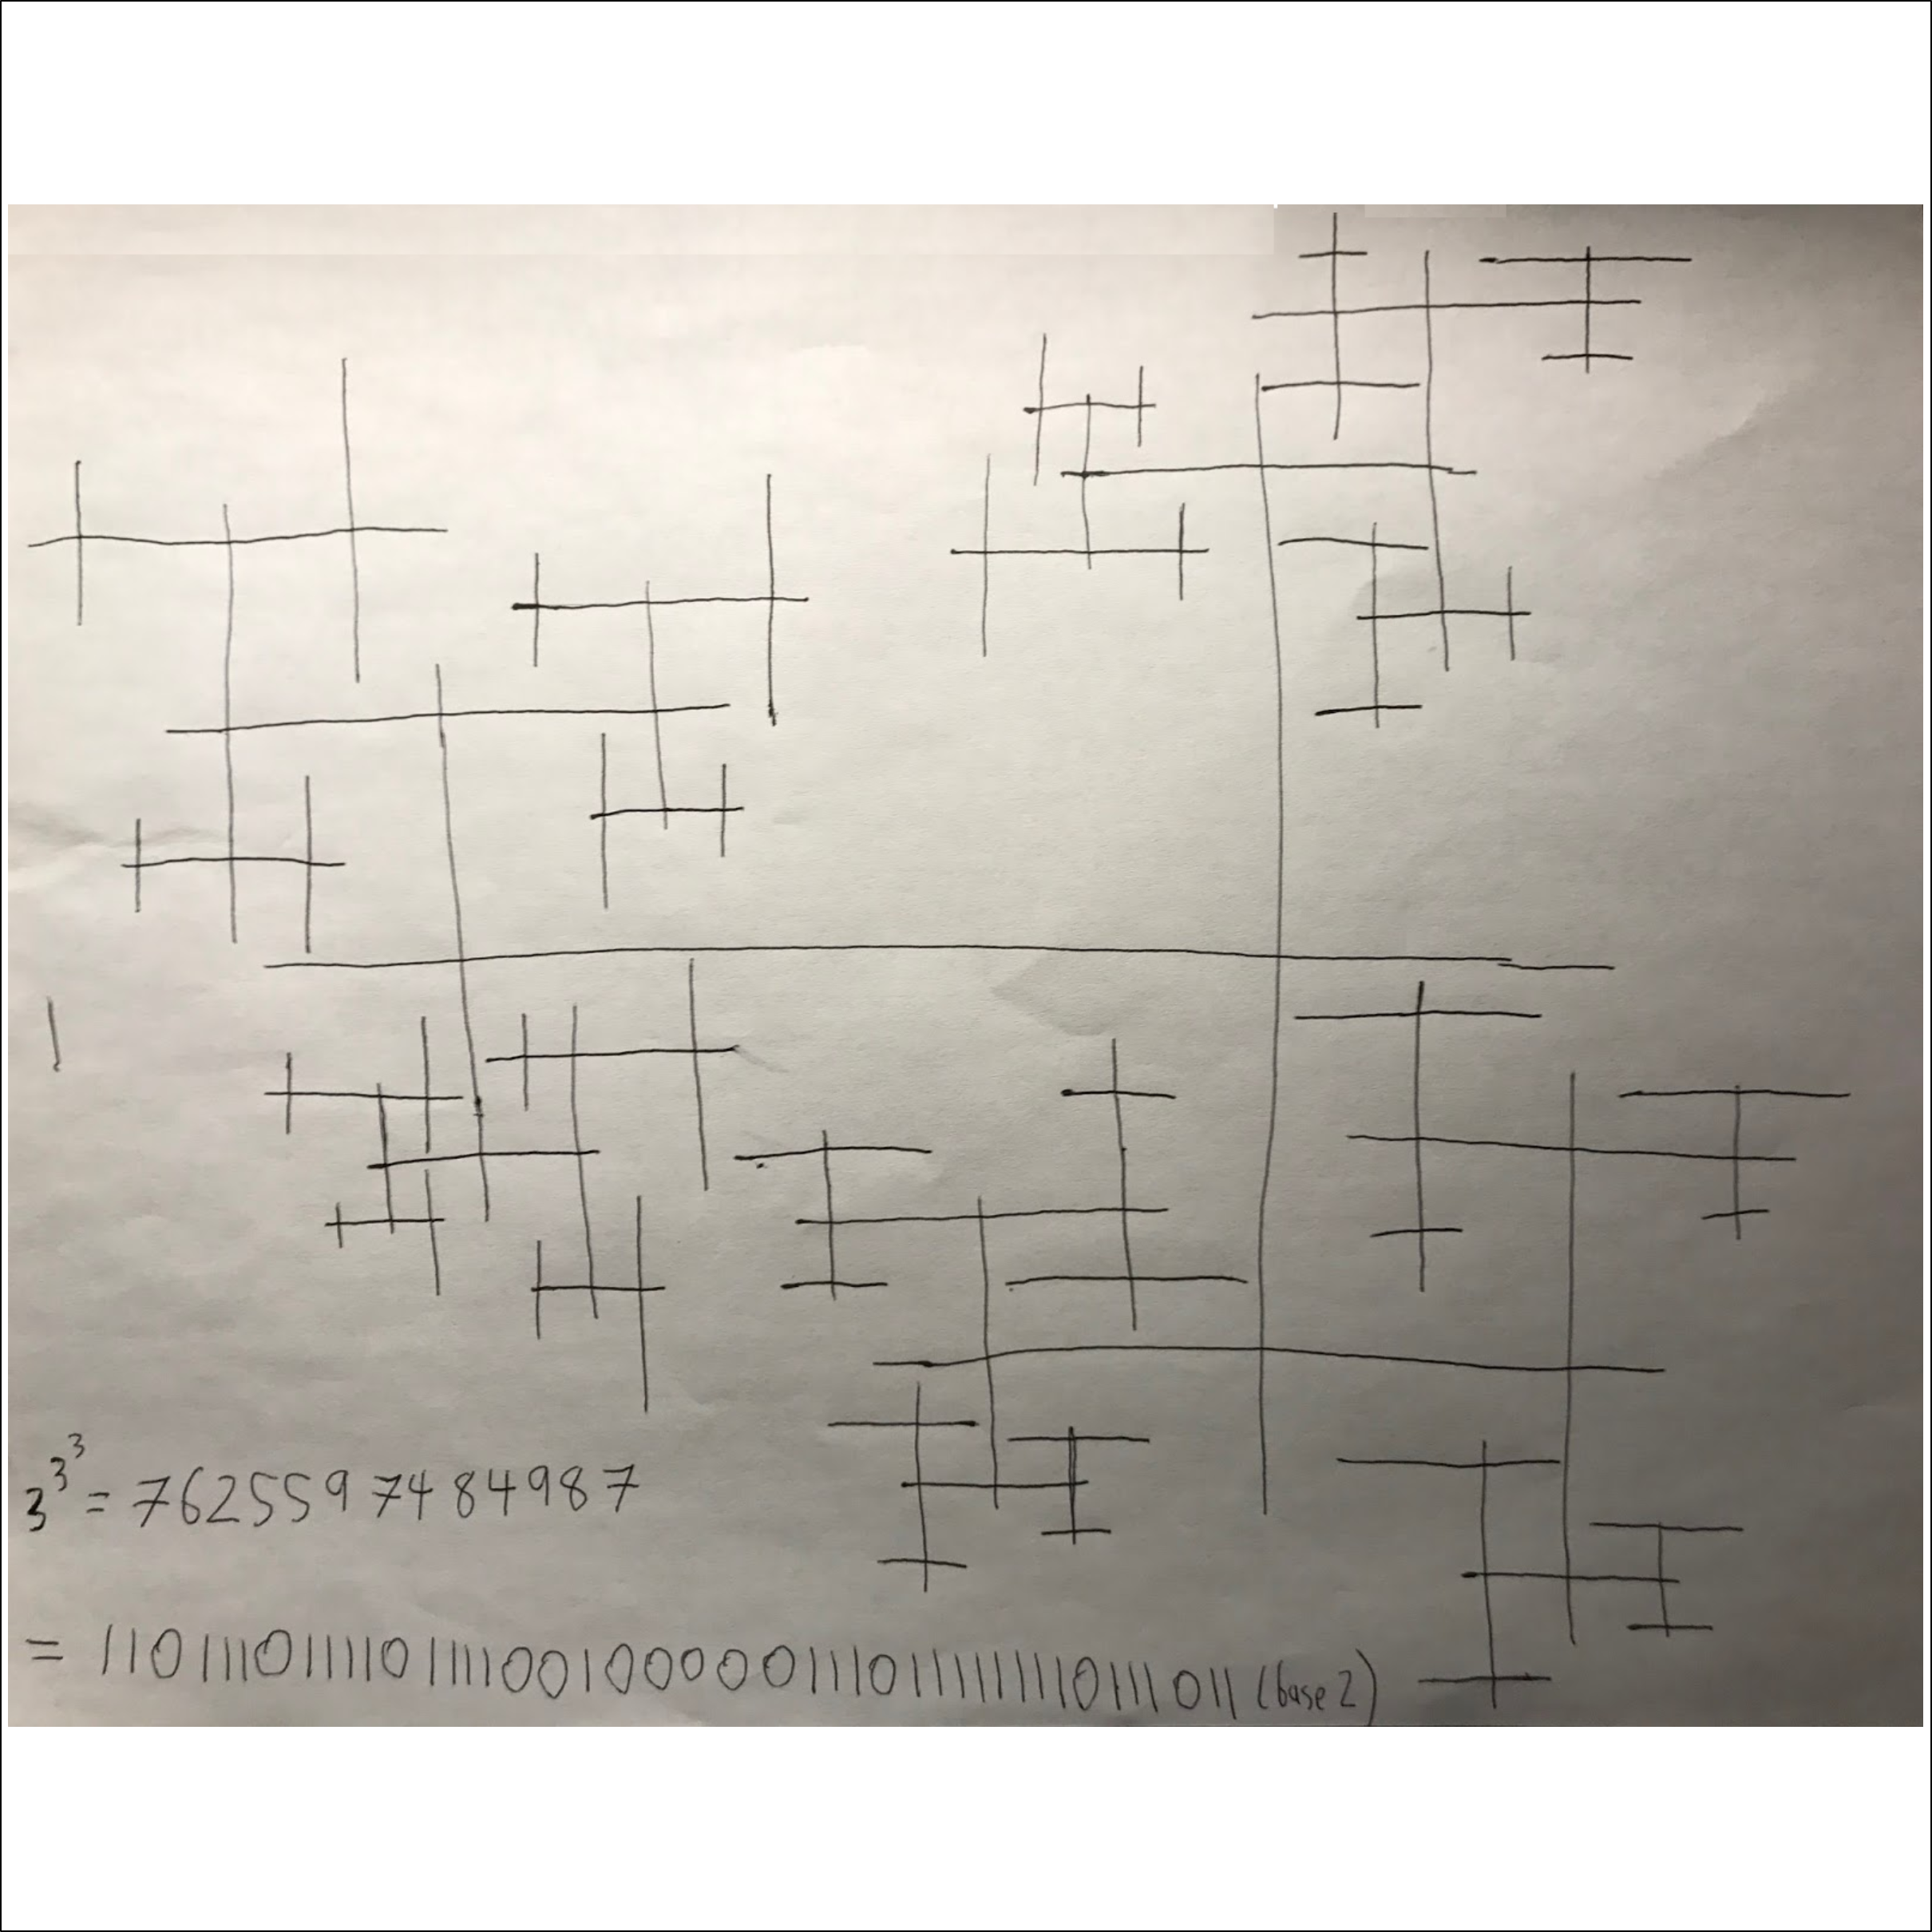 3³^³ = 7625597484987
= 1101110111101111001000001110111111110111011 (base 2)